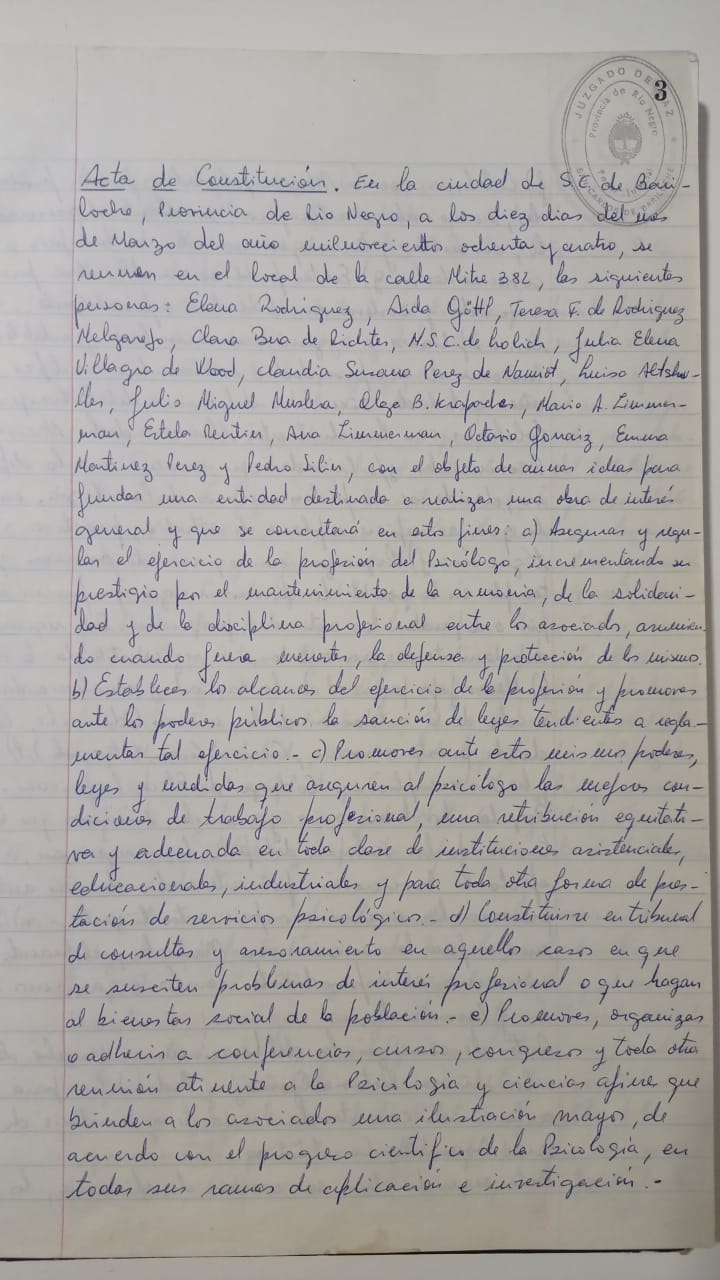 JUZGADO DE PAZ
Provincia de Río Negro
3
Acta de Constitución. En la ciudad de S.C. de Bari-
loche, Provincia de Rio Negro, a los diez dias del mes
de Marzo del año milnovecientos ochenta y cuatro, se
reunen en el local de la calle Mitre 382, las siguientes
personas: Elena Rodriguez, Aida Göttl, Teresa F. de Rodriguez
Melgarejo, Clara Bua de Richter, M.S.C. de Lolich, Julia Elena
Villagra de Wood, Claudia Susana Perez de Namiot, Luisa Altshu-
ller, Julio Miguel Muslera, Olga B. Krapodes, Mario A. Zimmer-
man, Estela Rentier, Ana Zimmerman, Octavio Gonaiz, Emma
Martinez Perez y Pedro Silin, con el objeto de aunar ideas para
fundar una entidad destinada a realizar una obra de interés
general y que se concretará en estos fines: a) Asegurar y regu-
lar el ejercicio de la profesión del Psicólogo, incrementando su
prestigio por el mantenimiento de la armonia, de la solidari-
dad y de la disciplina profesional entre los asociado, asumien-
do cuando fuera menester, la defensa y protección de los mismos.
b) Establecer los alcances del ejercicio de la profesión y promover
ante los poderes públicos la sanción de leyes tendientes a regla-
mentar tal ejercicio.- c) Promover ante estos mismos poderes,
leyes y medidas que aseguren al psicólogo las mejores con-
diciones de trabajo profesional, una retribución equitati-
va y adecuada en toda clase de instituciones asistenciales,
educacionales, industriales y para toda otra forma de pres-
tación de servicios psicológicos.- d) Constituirse en tribunal
de consultas y asesoramiento en aquellos casos en que
se susciten problemas de interés profesional o que hagan
al bienestar social de la población.- e) Promover, organizar
o adherir a conferencias, cursos, congresos y toda otra
reunión atinente a la Psicologia y ciencias afines que
brinden a los asociados una ilustración mayor, de
acuerdo con el progreso cientifico de la Psicologia, en
todas sus ramas de aplicación e investigación.-